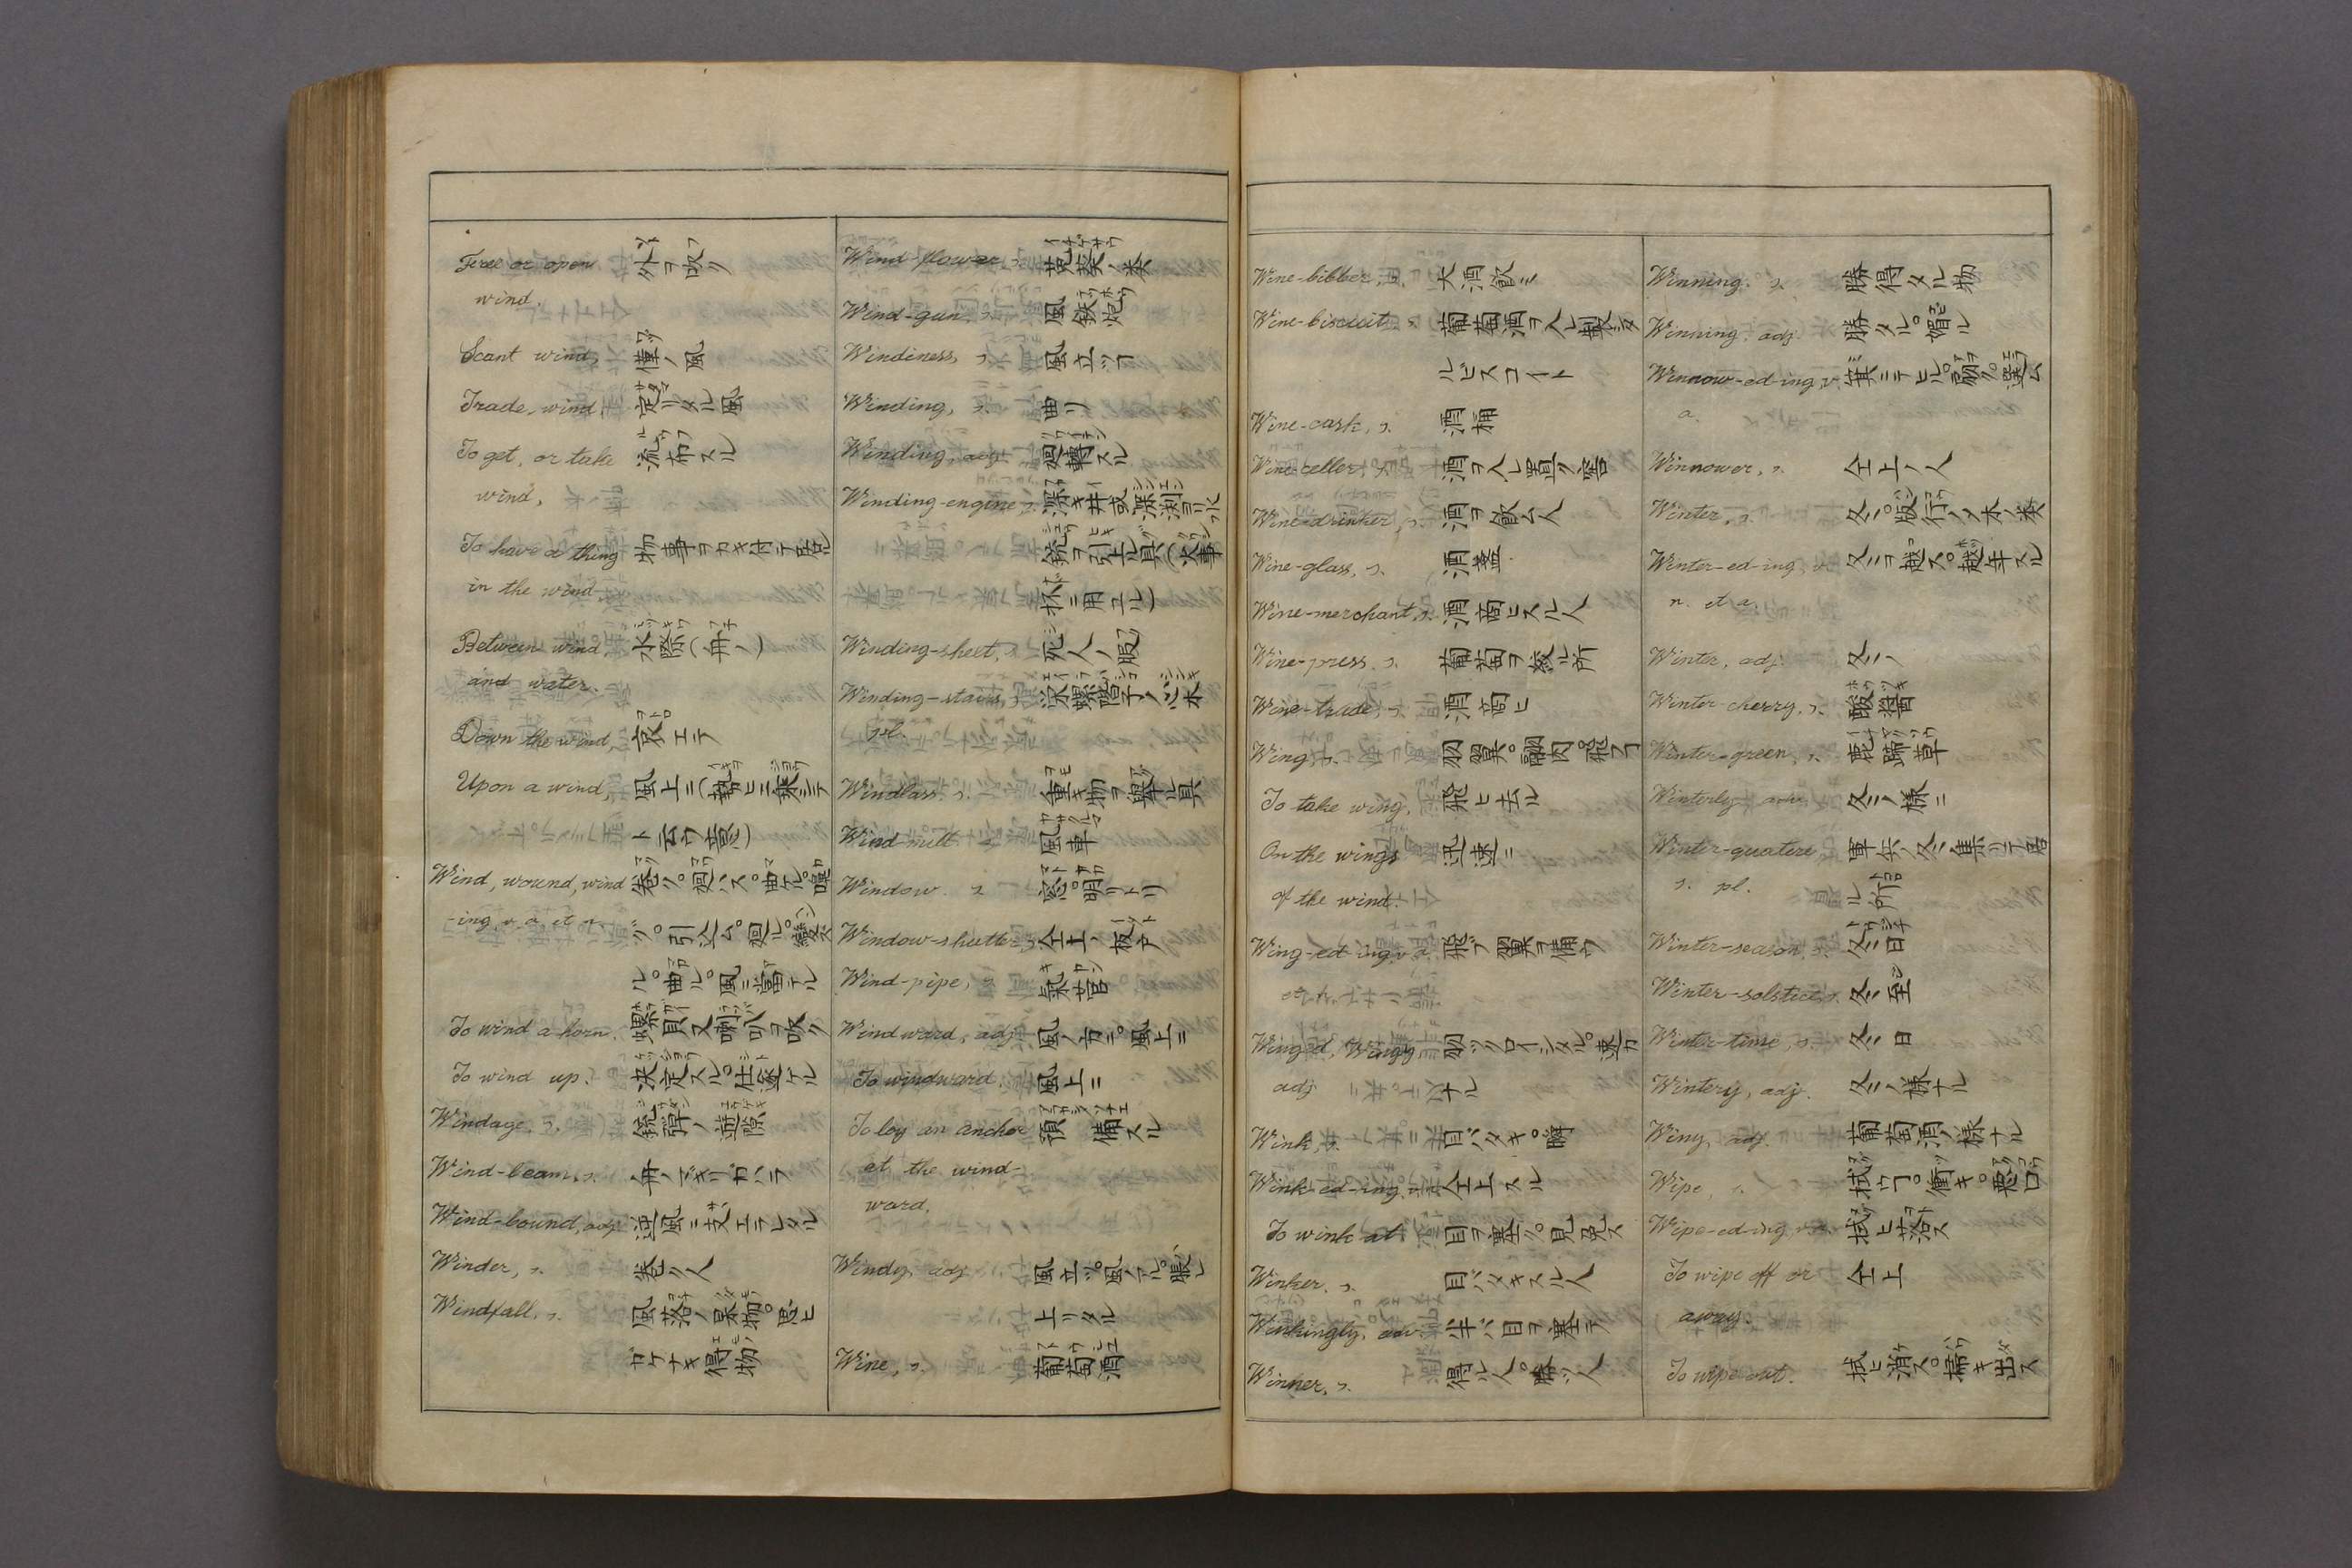 Free or open 外ヲ吹ク
wind.
Scant wind, 僅ノ風
Trade-wind, 定リタル風
To get, or take 流布スル
wind,
To have a thing 物事ヲカキ付テ居ル
in the wind
Between wind 水際(舟ノ)
and water.
Down the wind, 衰エテ
Upon a wind, 風上ニ(勢ヒニ乗シテ
ト云ウ意)
Wind, wound, wind 巻ク。廻ハス。曲ケル。
-ing, v. a. et n. 引込ム。廻ル。
ル。曲ル。風ニ當テル
To wind a horn. 螺貝又喇叭ヲ吹ク
To wind up. 決定スル。仕遂ケル
Windage, s. 銃弾ノ遊隙
Wind-beam, s.
Wind-bound, adj. 逆風ニ支エラレタル
Winder, s. 巻ク人
Windfall, s. 風落ノ果物。思ヒ
ガケナキ得物
Wind-flower, s.
Wind-gun, s. 風鉄炮
Windiness, s. 風立ツヿ
Winding, s. 曲リ
Winding, adj. 廻轉スル
Winding-engine, s. 深キ井或深渕ヨリ水
ヲ引上ル具(火事
抔ニ用ユル)
Winding-sheet, s. 死人ノ服
Winding-stairs, s.
pl.
Windlass, s. 重キ物ヲ舉ル具
Wind-mill s. 風車
Window. s. 窓。明リトリ
Window-shutter, s. 仝上ノ板戸
Wind-pipe, s. 氣管
Windward, adj. 風ノ方ニ。風上ニ
To windward. 風上ニ
To ley an anchor 預備スル
at the wind-
ward.
Windy, adj. 風立ツ。風ノアル。脹レ
上リタル
Wine, s. 葡萄酒
Wine-bibber, s. 大酒飲ミ
Wine-biscuit, s. 葡萄酒ヲ入レ製シタ
ルビスコイト
Wine-cask, s. 酒桶
Wine-celler, s. 酒ヲ入レ置ク窖
Wine-drinker, s. 酒ヲ飲ム人
Wine-glass, s. 酒盃
Wine-merchant, s. 酒商ヒスル人
Wine-press, s. 葡萄ヲ絞ル所
Wine-trade, s. 酒商ヒ
Wing, s. 羽翼。翩肉。飛フヿ
To take wing, 飛ヒ去ル
On the wings 迅速ニ
of the wind.
Wing-ed-ing, v. a. 飛ブ翼ヲ備ウ
et n.
Winged, Wingy,
adj ナル
Wink, s. 目バタキ。瞬
Wink-ed-ing, v. n. 仝上スル
To wink at. 目ヲ塞ク。見免ス
Winker, s. 目バタキスル人
Winkingly, adv. 半バ目ヲ塞テ
Winner, s. 得ル人。勝ツ人
Winning. s. 勝得タル物
Winning, adj. 勝タル。媚ル
Winnow-ed-ing, v. 箕ニテヒル。扇ク。選ム
a.
Winnower, s. 仝上ノ人
Winter, s.
Winter-ed-ing, v. 冬ヲ越ス。越年スル
n. et a.
Winter, adj. 冬ノ
Winter-cherry, s. 酸醤
Winter-green, s. 鹿蹄草
Winterly adv. 冬ノ様ニ
Winter-quaters, 軍兵ノ冬集リテ居
s. pl. ル所
Winter-season, s. 冬日
Winter-solstice, s. 冬至
Winter-time, s. 冬日
Wintery, adj. 冬ノ様ナル
Winy, adj. 葡萄酒ノ様ナル
Wipe, s. 拭ウヿ。衝キ。悪口
Wipe-ed-ing, v. a. 拭ヒ落ス
To wipe off or 仝上
away.
To wipe out. 拭ヒ消ス。掃キ出ス